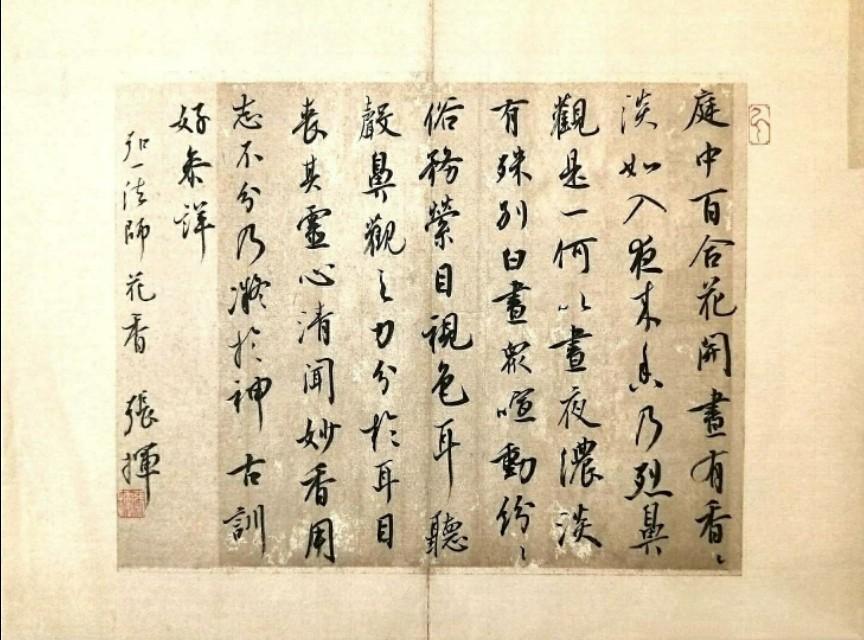 庭中百合花開晝有香〻
淡如入夜来香乃烈鼻
觀是一何以晝夜濃淡
有殊別白晝眾喧動紛〻
俗務縈目視色耳聽
聲鼻觀之力分於耳目
喪其靈心清聞妙香用
志不分乃凝於神古訓
好參詳
弘一法師 花香 張揮